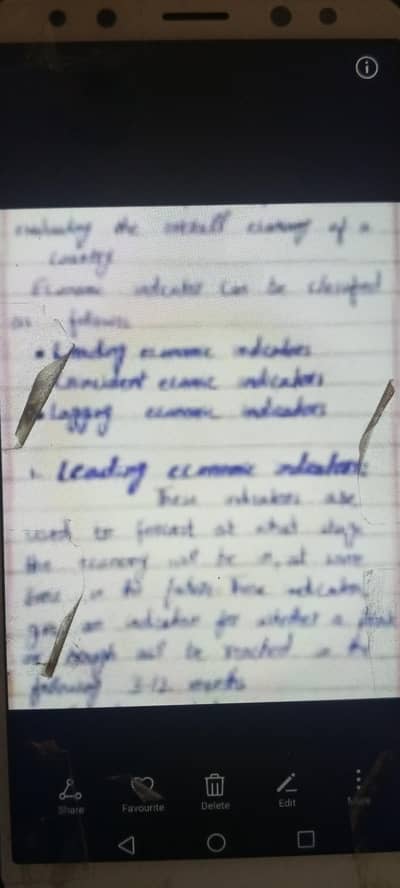 evaluating the overall economy of a
country
Economic indicator can be classified
as follows
• Leading economic indicators
Coincident economic indicators
• Lagging economic indicators
1. Leading economic indicators:
These indicators are
used to forecast at what stage
the economy will be in, at some
time in the future. These indicators
give an indicator for whether a peak
or trough will be reached in the
following 3-12 months
Share Favourite Delete Edit More